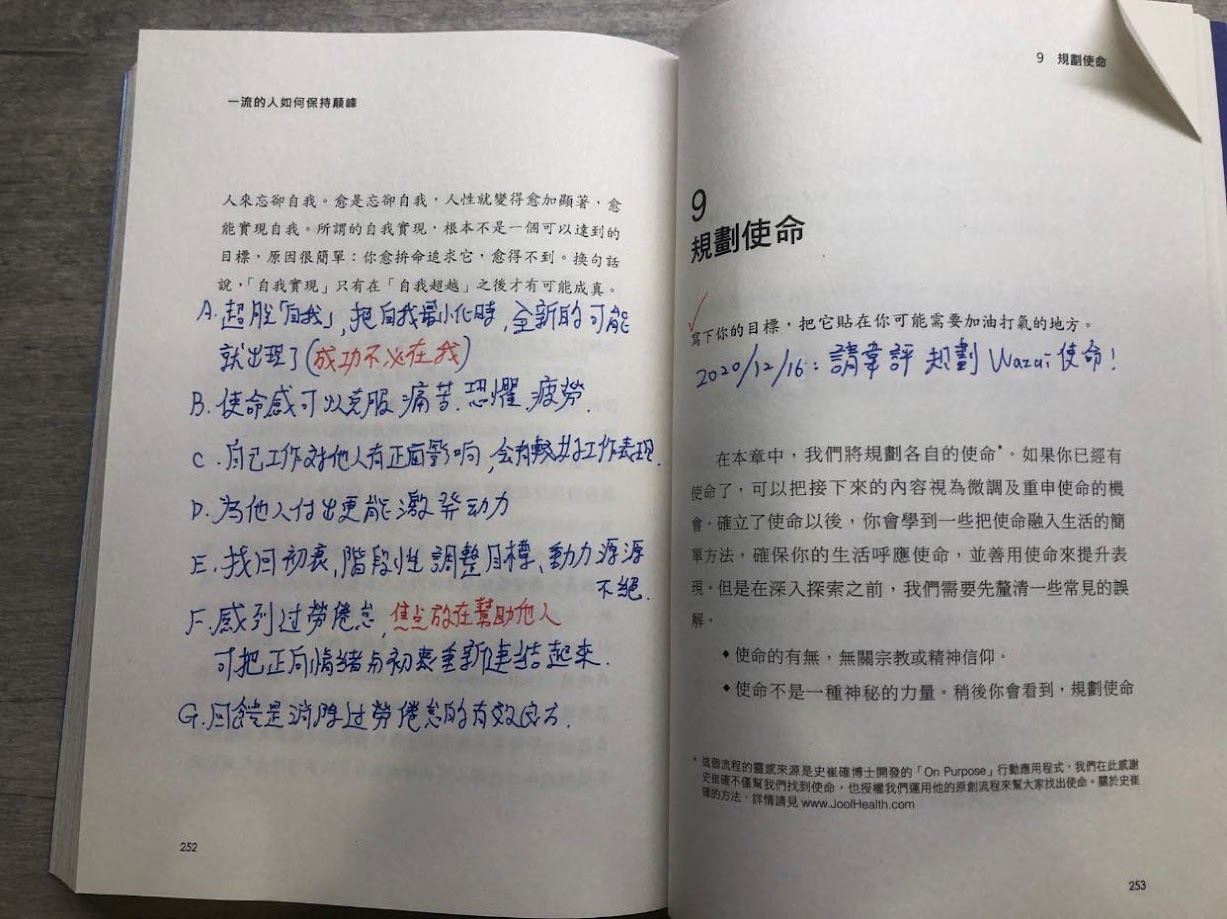 一流的人如何保持巔峰
人來忘卻自我。愈是忘卻自我，人性就變得愈加顯著，愈
能實現自我。所謂的自我實現，根本不是一個可以達到的
目標，原因很簡單：你愈拚命追求它，愈得不到。換句話
說，「自我實現」只有在「自我超越」之後才有可能成真。
A. 超脫「自我」，把自我最小化時，全新的可能
就出現了(成功不必在我)
B. 使命感可以克服痛苦、恐懼、疲勞.
C. 自己工作对他人有正面影响，会有較好工作表現.
D. 為他人付出更能激發动力
E. 找回初衷，階段性調整目標、動力源源
不絕.
F. 感到过勞倦怠，焦点放在幫助他人
可把正向情緒与初衷重新連結起來.
G. 回饋是消除过勞倦怠的有效良方.
252
9 規劃使命
9
規劃使命
寫下你的目標，把它貼在你可能需要加油打氣的地方。
2020/12/16：請韋評規劃 Wazai 使命！
在本章中，我們將規劃各自的使命*。如果你已經有
使命了，可以把接下來的內容視為微調及重申使命的機
會。確立了使命以後，你會學到一些把使命融入生活的簡
單方法，確保你的生活呼應使命，並善用使命來提升表
現。但是在深入探索之前，我們需要先釐清一些常見的誤
解。
◆ 使命的有無，無關宗教或精神信仰。
◆ 使命不是一種神秘的力量。稍後你會看到，規劃使命
* 這個流程的靈感來源是史崔確博士開發的「On Purpose」行動應用程式，我們在此感謝
史崔確不僅幫我們找到使命，也授權我們運用他的原創流程來幫大家找出使命。關於史崔
確的方法，詳情請見 www.JoolHealth.com
253